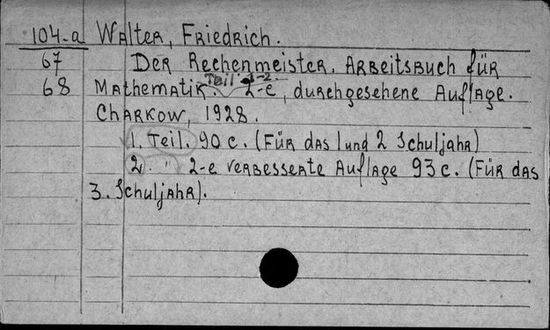 104-a Walter, Friedrich.
67 Der Rechenmeister. Arbeitsbuch für
Teil 1-2.
68 Mathematik. 2-e, durchgesehene Auflage.
Charkow, 1928.
1. Teil. 90 c. (Für das 1 und 2 Schuljahr)
2. " 2-e verbesserte Auflage 93 c. (Für das
3. Schuljahr).